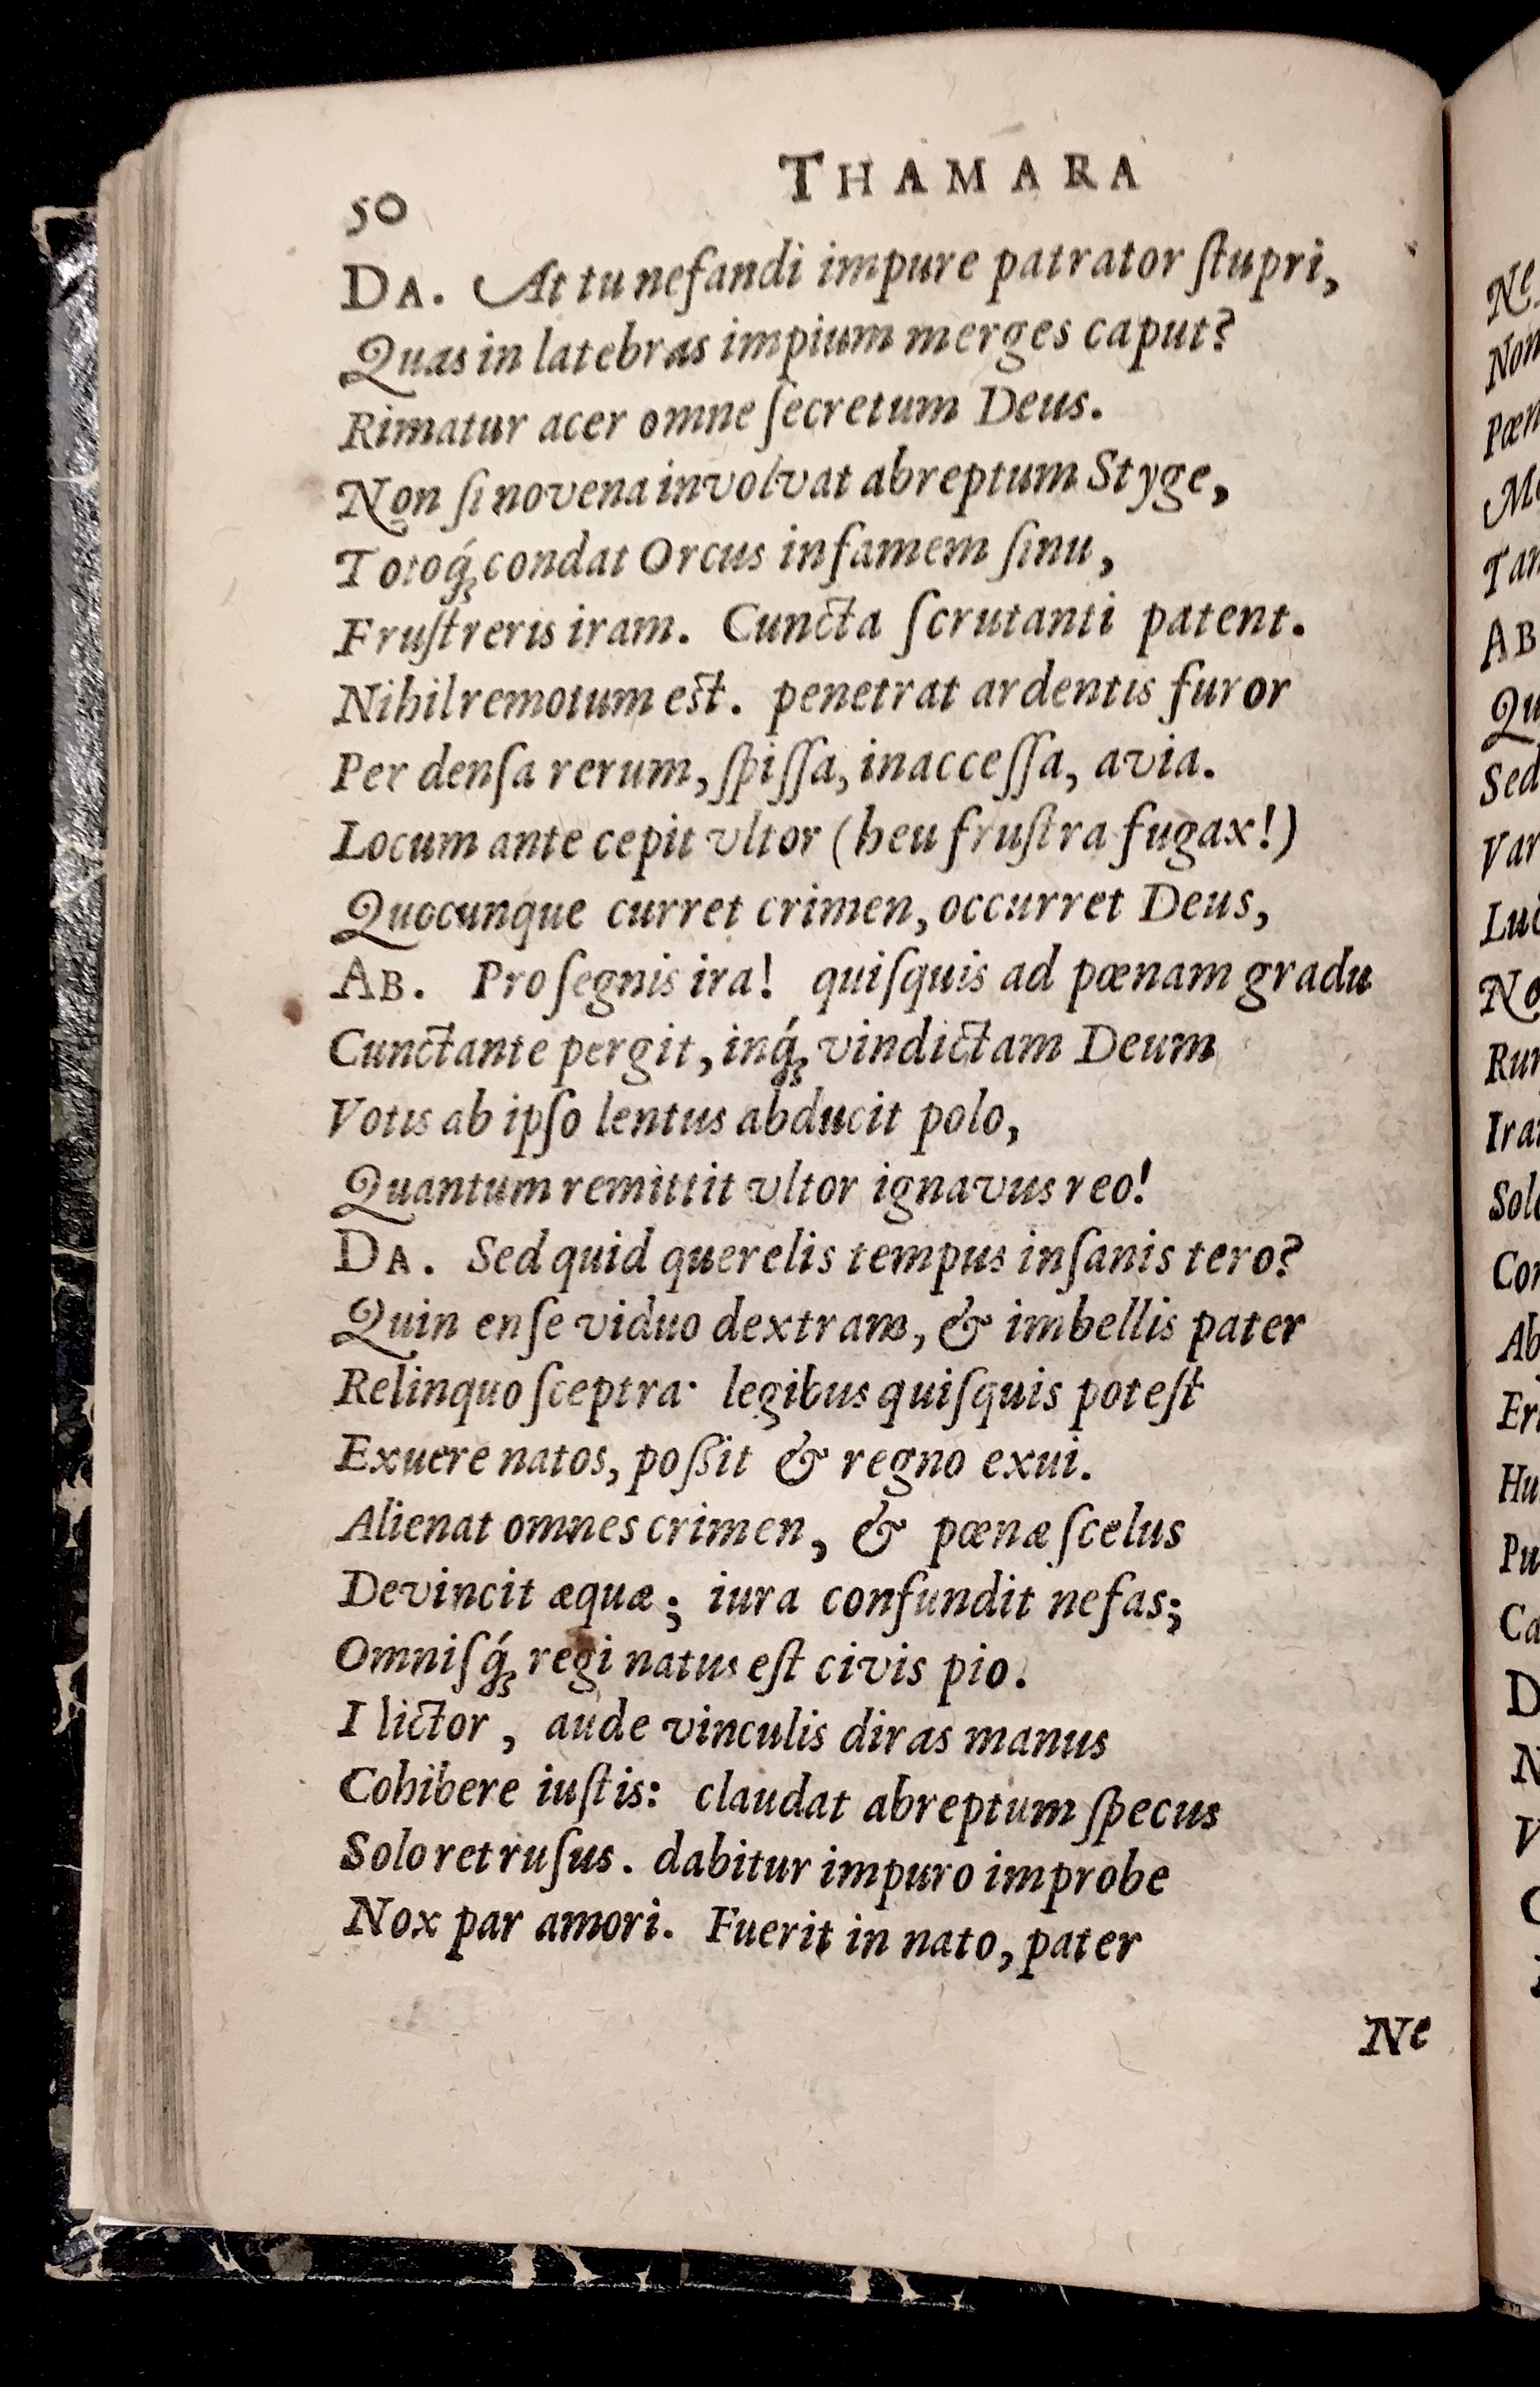 50
THAMARA
DA. At tu nefandi impure patrator ſtupri,
Quas in latebras impium merges caput?
Rimatur acer omne ſecretum Deus.
Non ſi novena involvat abreptum Styge,
Totoq́ꝫ condat Orcus infamem ſinu,
Fruſtreris iram. Cuncta ſcrutanti patent.
Nihil remotum est. penetrat ardentis furor
Per denſa rerum, ſpiſſa, inacceſſa, avia.
Locum ante cepit vltor (heu fruſtra fugax!)
Quocunque curret crimen, occurret Deus,
AB. Pro ſegnis ira! quiſquis ad pœnam gradu
Cunctante pergit, inq́ꝫ vindictam Deum
Votis ab ipſo lentus abducit polo,
Quantum remittit vltor ignavus reo!
DA. Sed quid querelis tempus inſanis tero?
Quin enſe viduo dextram, & imbellis pater
Relinquo ſceptra· legibus quiſquis poteſt
Exuere natos, poſsit & regno exui.
Alienat omnes crimen, & pœnæ ſcelus
Devincit æquæ; iura confundit nefas;
Omniſq́ꝫ regi natus eſt civis pio.
I lictor, aude vinculis diras manus
Cohibere iuſtis: claudat abreptum ſpecus
Solo retruſus. dabitur impuro improbe
Nox par amori. Fuerit in nato, pater
Ne
Ne
Non
Pœn
Tan
AB
Qu
Sed
Var
Luc
No
Run
Sol
Con
Ab
Hu
Pu
Ca
D
N
V